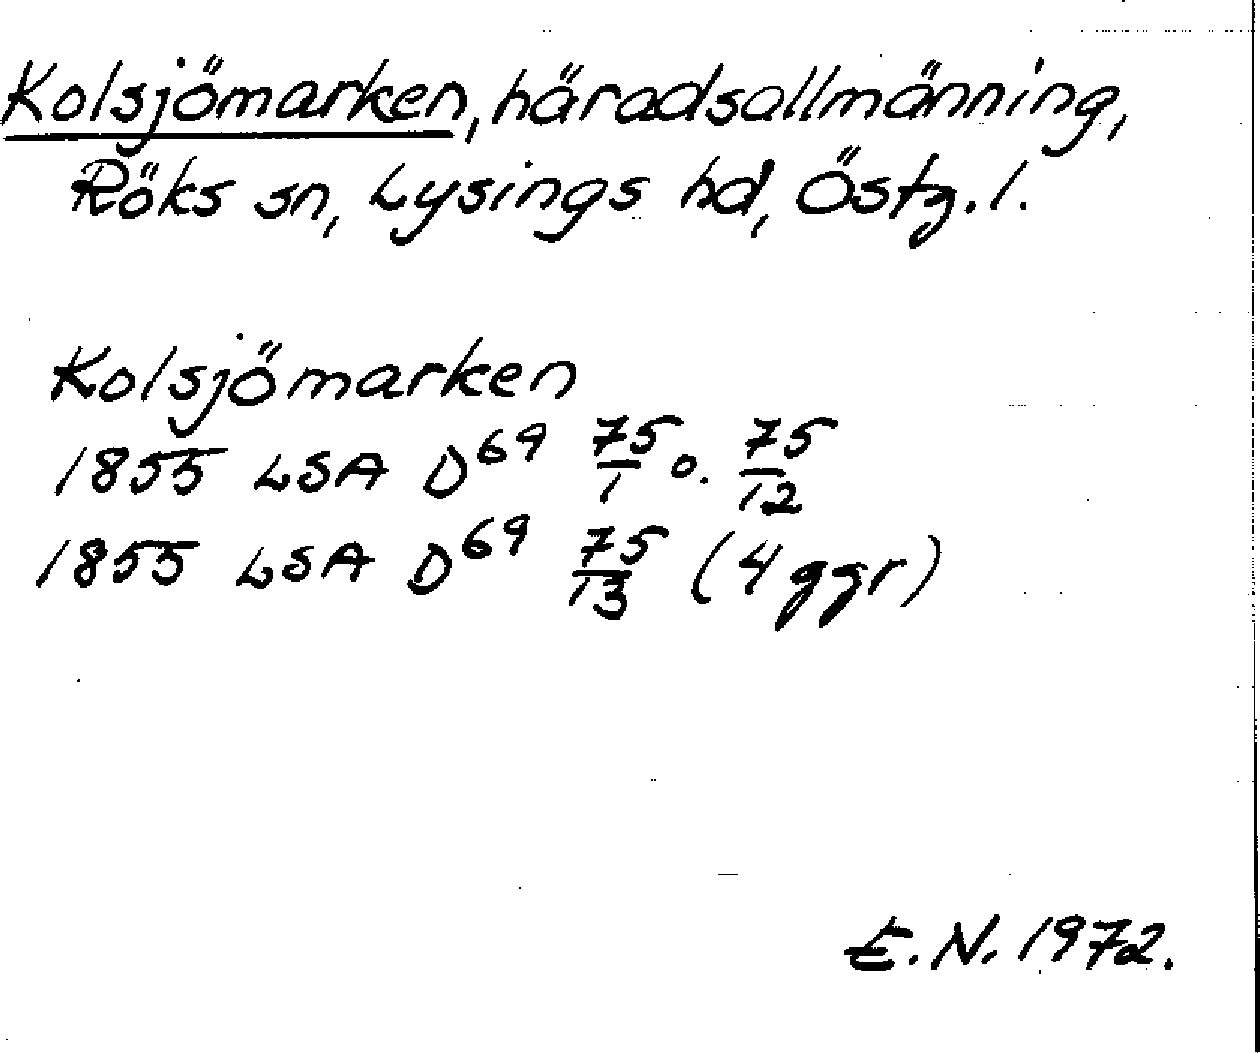 Kolsjömarken, häradsallmänning,
Röks sn, Lysings hd, Östg.l.
Kolsjömarken
1855 LSA D⁶⁹ 75/1 o. 75/12
1855 LSA D⁶⁹ 75/13 (4 ggr)
E.N. 1972.